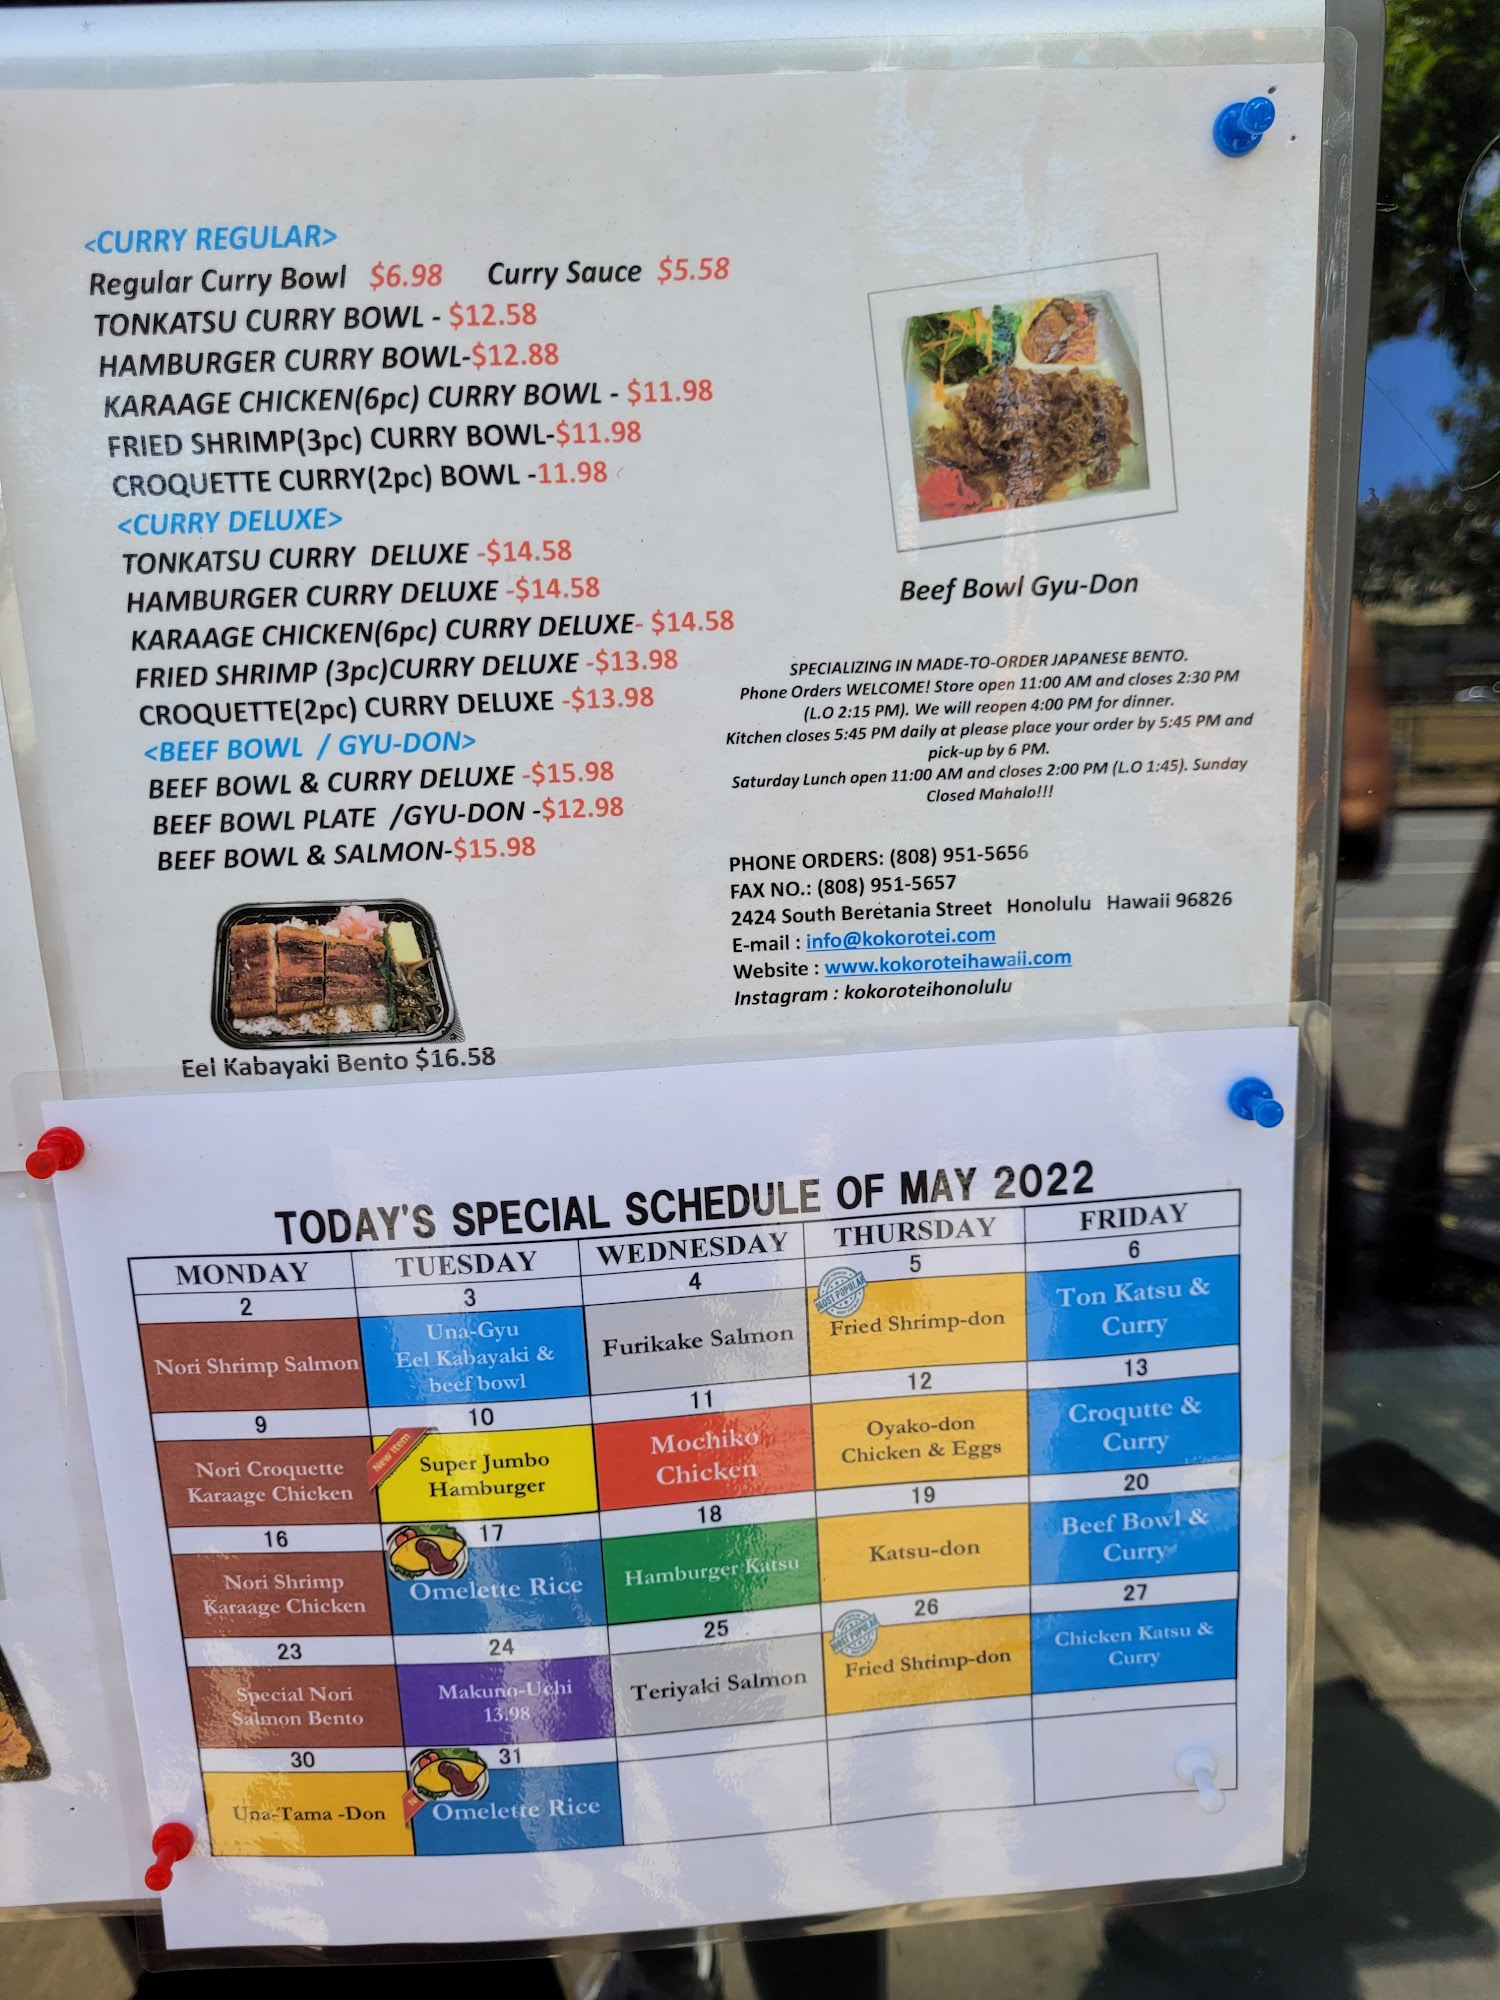 <CURRY REGULAR>
Regular Curry Bowl $6.98 Curry Sauce $5.58
TONKATSU CURRY BOWL - $12.58
HAMBURGER CURRY BOWL-$12.88
KARAAGE CHICKEN(6pc) CURRY BOWL - $11.98
FRIED SHRIMP(3pc) CURRY BOWL-$11.98
CROQUETTE CURRY(2pc) BOWL -11.98
<CURRY DELUXE>
TONKATSU CURRY DELUXE -$14.58
HAMBURGER CURRY DELUXE -$14.58
KARAAGE CHICKEN(6pc) CURRY DELUXE- $14.58
FRIED SHRIMP (3pc)CURRY DELUXE -$13.98
CROQUETTE(2pc) CURRY DELUXE -$13.98
<BEEF BOWL / GYU-DON>
BEEF BOWL & CURRY DELUXE -$15.98
BEEF BOWL PLATE /GYU-DON -$12.98
BEEF BOWL & SALMON-$15.98
Eel Kabayaki Bento $16.58
Beef Bowl Gyu-Don
SPECIALIZING IN MADE-TO-ORDER JAPANESE BENTO.
Phone Orders WELCOME! Store open 11:00 AM and closes 2:30 PM
(L.O 2:15 PM). We will reopen 4:00 PM for dinner.
Kitchen closes 5:45 PM daily at please place your order by 5:45 PM and
pick-up by 6 PM.
Saturday Lunch open 11:00 AM and closes 2:00 PM (L.O 1:45). Sunday
Closed Mahalo!!!
PHONE ORDERS: (808) 951-5656
FAX NO.: (808) 951-5657
2424 South Beretania Street Honolulu Hawaii 96826
E-mail : info@kokorotei.com
Website : www.kokoroteihawaii.com
Instagram : kokoroteihonolulu
TODAY'S SPECIAL SCHEDULE OF MAY 2022
MONDAY TUESDAY WEDNESDAY THURSDAY FRIDAY
2 3 4 5 6
Nori Shrimp Salmon
Una-Gyu
Eel Kabayaki &
beef bowl
Furikake Salmon
MOST POPULAR
Fried Shrimp-don
Ton Katsu &
Curry
9 10 11 12 13
Nori Croquette
Karaage Chicken
New Item
Super Jumbo
Hamburger
Mochiko
Chicken
Oyako-don
Chicken & Eggs
Croqutte &
Curry
16 17 18 19 20
Nori Shrimp
Karaage Chicken
Omelette Rice
Hamburger Katsu
Katsu-don
Beef Bowl &
Curry
23 24 25 26 27
Special Nori
Salmon Bento
Makuno-Uchi
13.98
Teriyaki Salmon
MOST POPULAR
Fried Shrimp-don
Chicken Katsu &
Curry
30 31
Una-Tama -Don
Omelette Rice